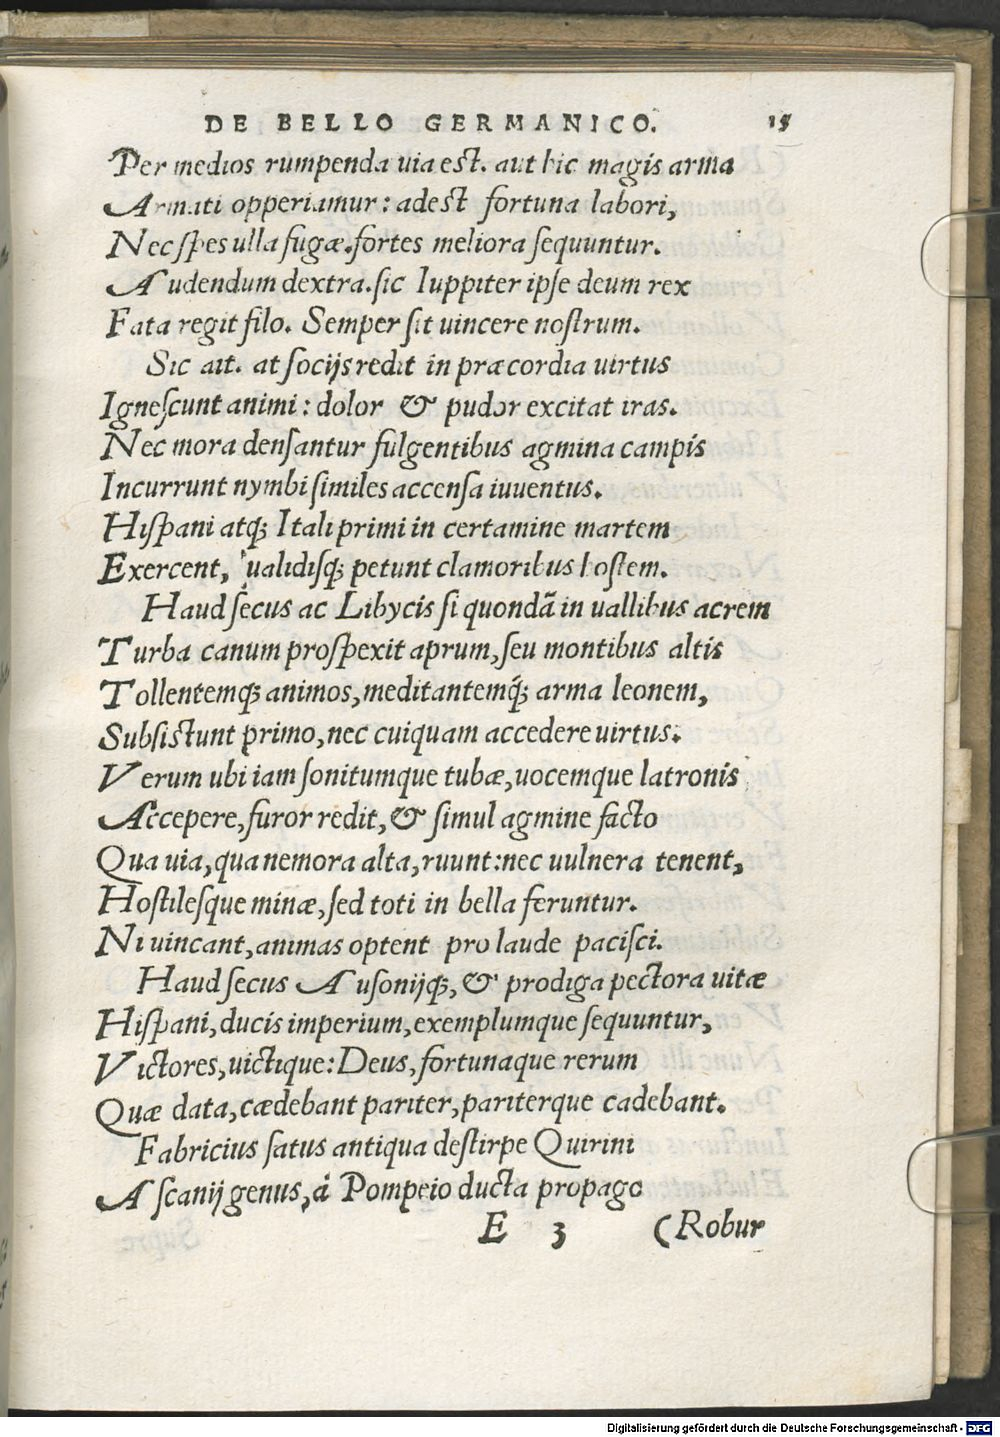 DE BELLO GERMANICO. 15
Per medios rumpenda uia est. aut hic magis arma
Armati opperiamur: adest fortuna labori,
Nec spes ulla fugæ. fortes meliora sequuntur.
Audendum dextra. sic Iuppiter ipse deum rex
Fata regit filo. Semper sit uincere nostrum.
Sic ait. at socijs redit in præcordia uirtus
Ignescunt animi: dolor & pudor excitat iras.
Nec mora densantur fulgentibus agmina campis
Incurrunt nymbi similes accensa iuuentus.
Hispani atq; Itali primi in certamine martem
Exercent, ualidisq; petunt clamoribus hostem.
Haud secus ac Libycis si quondã in uallibus acrem
Turba canum prospexit aprum, seu montibus altis
Tollentemq; animos, meditantemq́; arma leonem,
Subsistunt primo, nec cuiquam accedere uirtus.
Verum ubi iam sonitumque tubæ, uocemque latronis
Accepere, furor redit, & simul agmine facto
Qua uia, qua nemora alta, ruunt: nec uulnera tenent,
Hostilesque minæ, sed toti in bella feruntur.
Ni uincant, animas optent pro laude pacisci.
Haud secus Ausonijq;, & prodiga pectora uitæ
Hispani, ducis imperium, exemplumque sequuntur,
Victores, uictique: Deus, fortunaque rerum
Quæ data, cædebant pariter, pariterque cadebant.
Fabricius satus antiqua de stirpe Quirini
Ascanij genus, á Pompeio ducta propago
E 3 (Robur
Digitalisierung gefördert durch die Deutsche Forschungsgemeinschaft - DFG